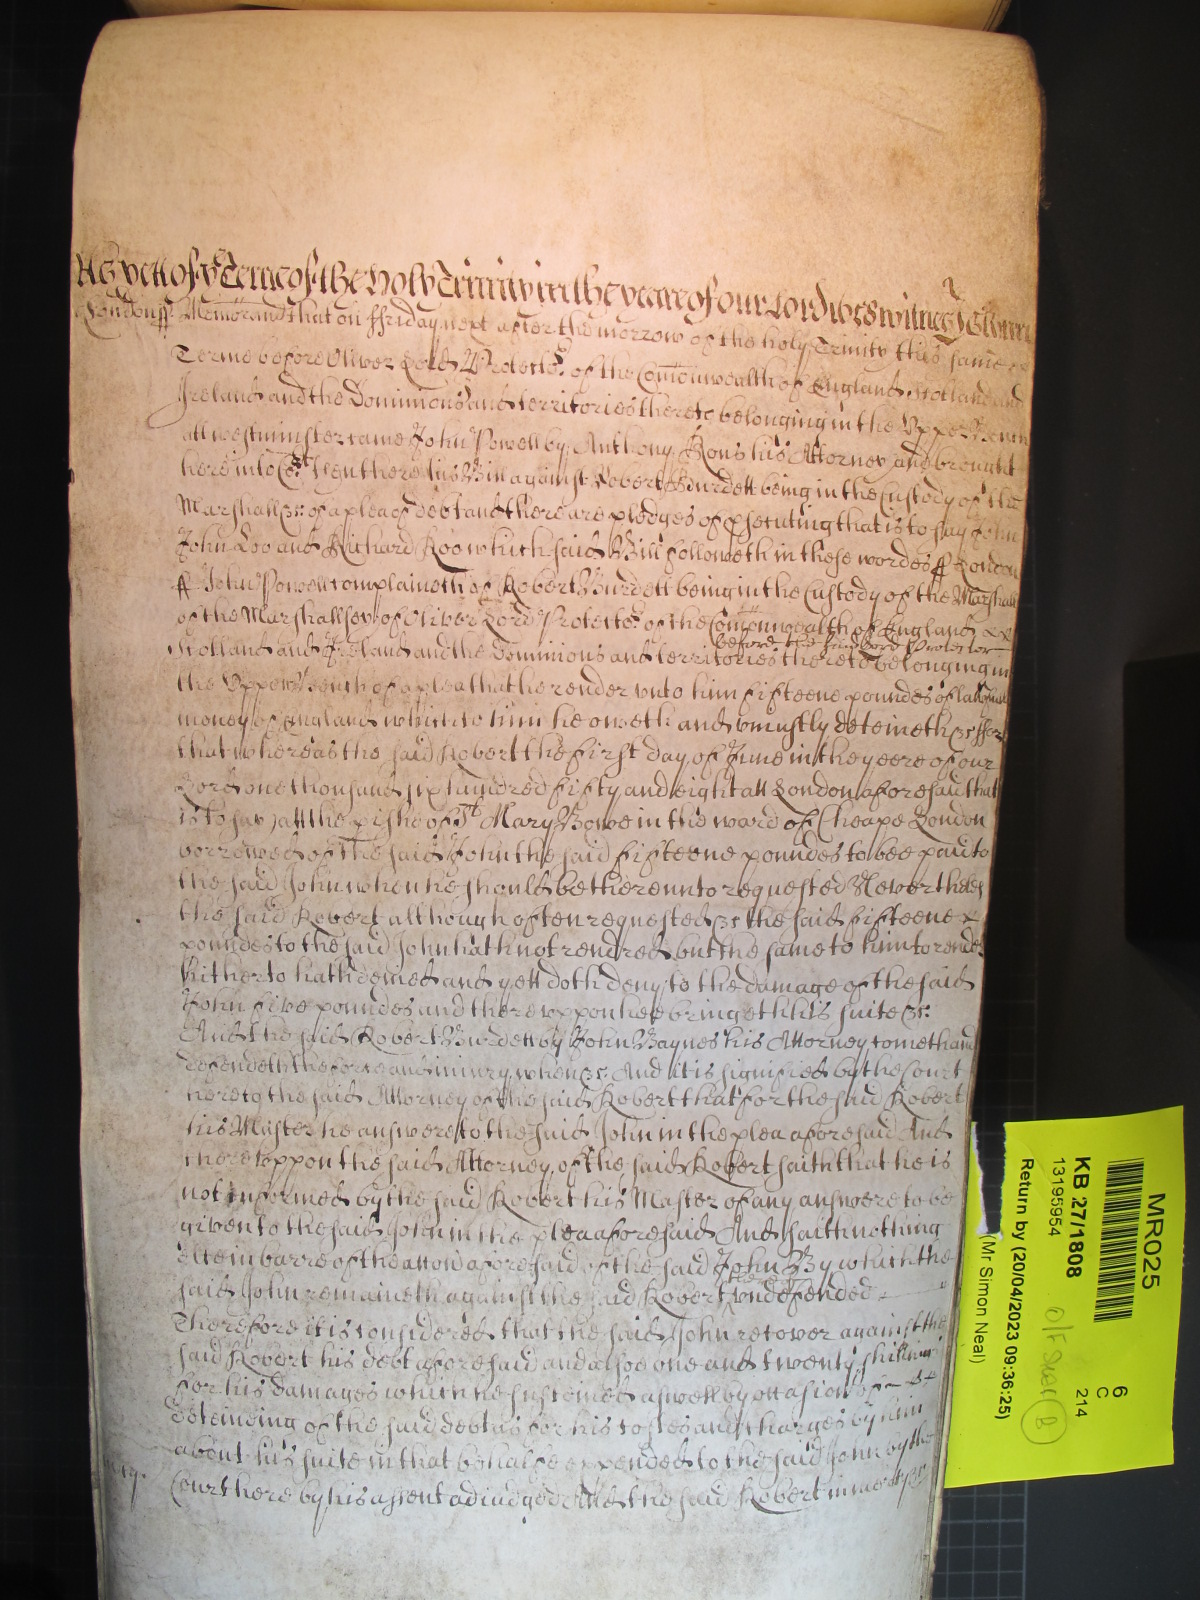 As yett of ye Terme of the holy Trinity in the yeare of our Lord 1658 witnes
London ss Memorand That on ffriday next after the morrow of the holy Trinity this same
Terme before Oliver Lord Protector of the Comonwealth of England Scotland and
Ireland and the Dominions and territories thereto belonging in the Upper Bench
att westminster came John Powell by Anthony his Attorney and brought
here into Cort then there his Bill against Robert Burdett being in the Custody of the
Marshall &c of a plea of debt and there are pledges of psecuting that is to say John
John Doo and Richard Roo which said Bill followeth in these wordes ss London
ss John Powell complaineth of Robert Burdett being in the Custody of the Marshall
of the Marshallsey of Oliver Lord Protector of the Comonwealth of England
before the Lord Protector
Scotland and Ireland and the Dominions and territories thereto belonging in
the Upper Bench of a plea that he render unto him fifteene poundes of lawfull
money of England which to him he oweth and uniustly deteineth &c ffor
that whereas the said Robert the first day of June in the yeere of our
Lord one thousand six hundred fifty and eight att London aforesaid that
is to say att the pishe of St Mary Bowe in the ward of Cheape London
borrowed of the said John the said fifteene poundes to bee paid to
the said John when he should be thereunto requested Neverthelес
the said Robert although often requested &c the said fifteene
poundes to the said John hath not rendred but the same to him to render
hitherto hath denied and yett doth deny to the damage of the said
John five poundes and thereuppon hee bringeth his suite &c
And the said Robert Burdett by John Baynes his Attorney cometh and
defendeth the force and iniury when &c And it is signified by the Court
here to the said Attorney of the said Robert that for the said Robert
his Master he answere to the said John in the plea aforesaid And
thereuppon the said Attorney of the said Robert saith that he is
not informed by the said Robert his Master of any answere to be
given to the said John in the plea aforesaid And saith nothing
else in barre of the accon aforesaid of the said John By which the
said John remaineth against the said Robert undefended
Therefore it is considered that the said John recover against the
said Robert his debt aforesaid and alsoe one and twenty shillings
for his damages which he susteined aswell by occasion of
deteineing of the said debt as for his costes and charges by him
about his suite in that behalfe expended to the said John by the
mcy.
Court here by his assent adiudged And the said Robert in mercy &c
MR025
6
C
214
KB 27/1808
13195954
Return by (20/04/2023 09:36:25)
(Mr Simon Neal)